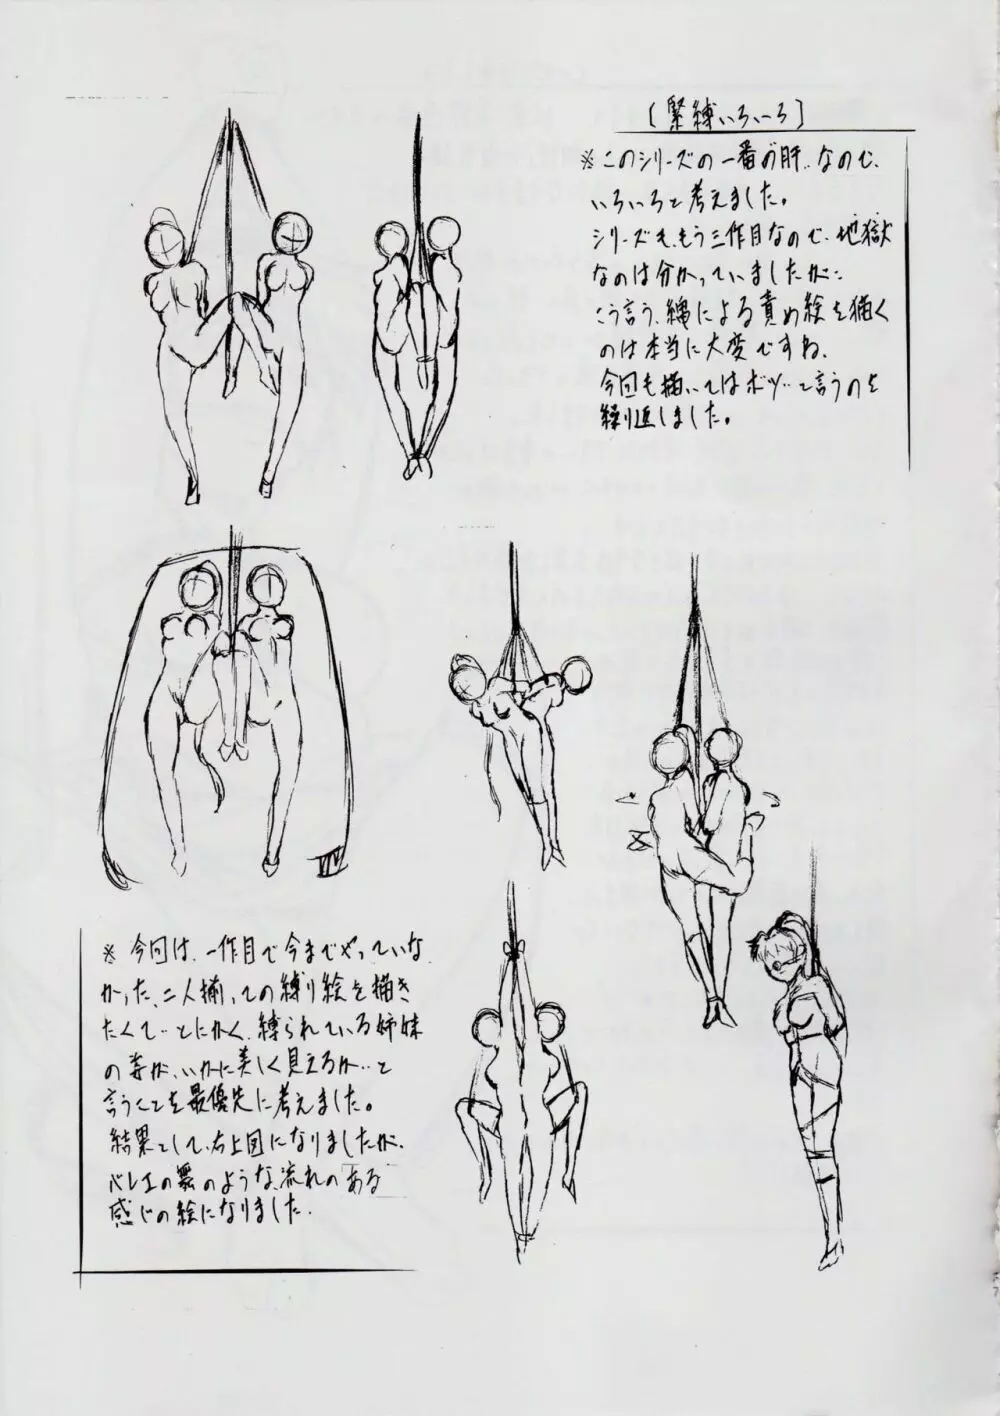 [緊縛いろいろ]
※このシリーズの一番の肝‥なので、
いろいろと考えました。
シリーズも、もう三作目なので、地獄
なのは分かっていましたが‥
こう言う、縄による責め絵を描く
のは本当に大変ですね、
今回も描いてはボツ‥と言うのを
繰り返しました。
※今回は、一作目で今までやっていな
かった、二人揃っての縛り絵を描き
たくて‥とにかく、縛られている姉妹
の姿が、いかに美しく見えるか‥と
言うことを最優先に考えました。
結果として、右上図になりましたが、
バレエの舞のような、流れのある
感じの絵になりました。